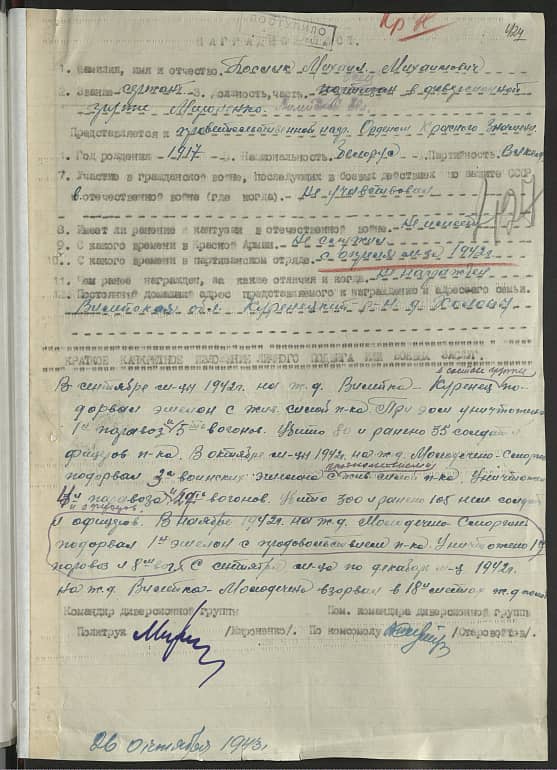 ПОСТУПИЛО
Кр Зн
424
НАГРАДНОЙ ЛИСТ.
1. Фамилия, имя и отчество. Михаил Михайлович
2. Звание сержант 3. Должность, часть. партизан в диверсионной
группе Мироненко.
Представляется к правительственной нагр. Орденом Красного Знамени.
4. Год рождения 1917 5. Национальность. Белорус 6. Партийность.
7. Участие в гражданской войне, последующих боевых действиях по защите СССР
в отечественной войне (где когда).- Не участвовал
8. Имеет ли ранение и контузии в отечественной войне.
9. С какого времени в Красной Армии. Не служил
10. С какого времени в партизанском отряде. с м-ца 1942г.
11. Чем ранее награжден, за какие отличия и когда. Не награжден
12. Постоянный домашний адрес представляемого к награждению и адрес его семьи.
Вилейская обл. Куренецкий р-н д.
КРАТКОЕ КОНКРЕТНОЕ ИЗЛОЖЕНИЕ ЛИЧНОГО ПОДВИГА ИЛИ БОЕВЫХ ЗАСЛУГ.
в составе группы
В сентябре м-це 1942г. на ж.д. Вилейка - Куренец по-
дорвал эшелон с жив. силой п-ка. При этом уничтожено
1н паровоз и 5 вагонов. Убито 80 и ранено 35 солдат и
офицеров п-ка. В октябре м-це 1942г. на ж.д. Молодечно-Сморгонь
подорвал 3а воинских эшелона с жив. силой п-ка. Уничтожено
паровоза вагонов. Убито 300 и ранено 105 солдат
и офицеров. В ноябре 1942г. на ж.д. Молодечно Сморгонь
подорвал 1н эшелон с продовольствием п-ка. Уничтожено 1н
паровоз и 8 ваг. С сентября м-ца по декабрь м-ц 1942г.
на ж.д. Вилейка-Молодечно взорвал в 18и местах ж.д.
Командир диверсионной группы Пом. командира диверсионной группы
Политрук /Мироненко/. По комсомолу /Старовойтов/.
26 октября 1943г.